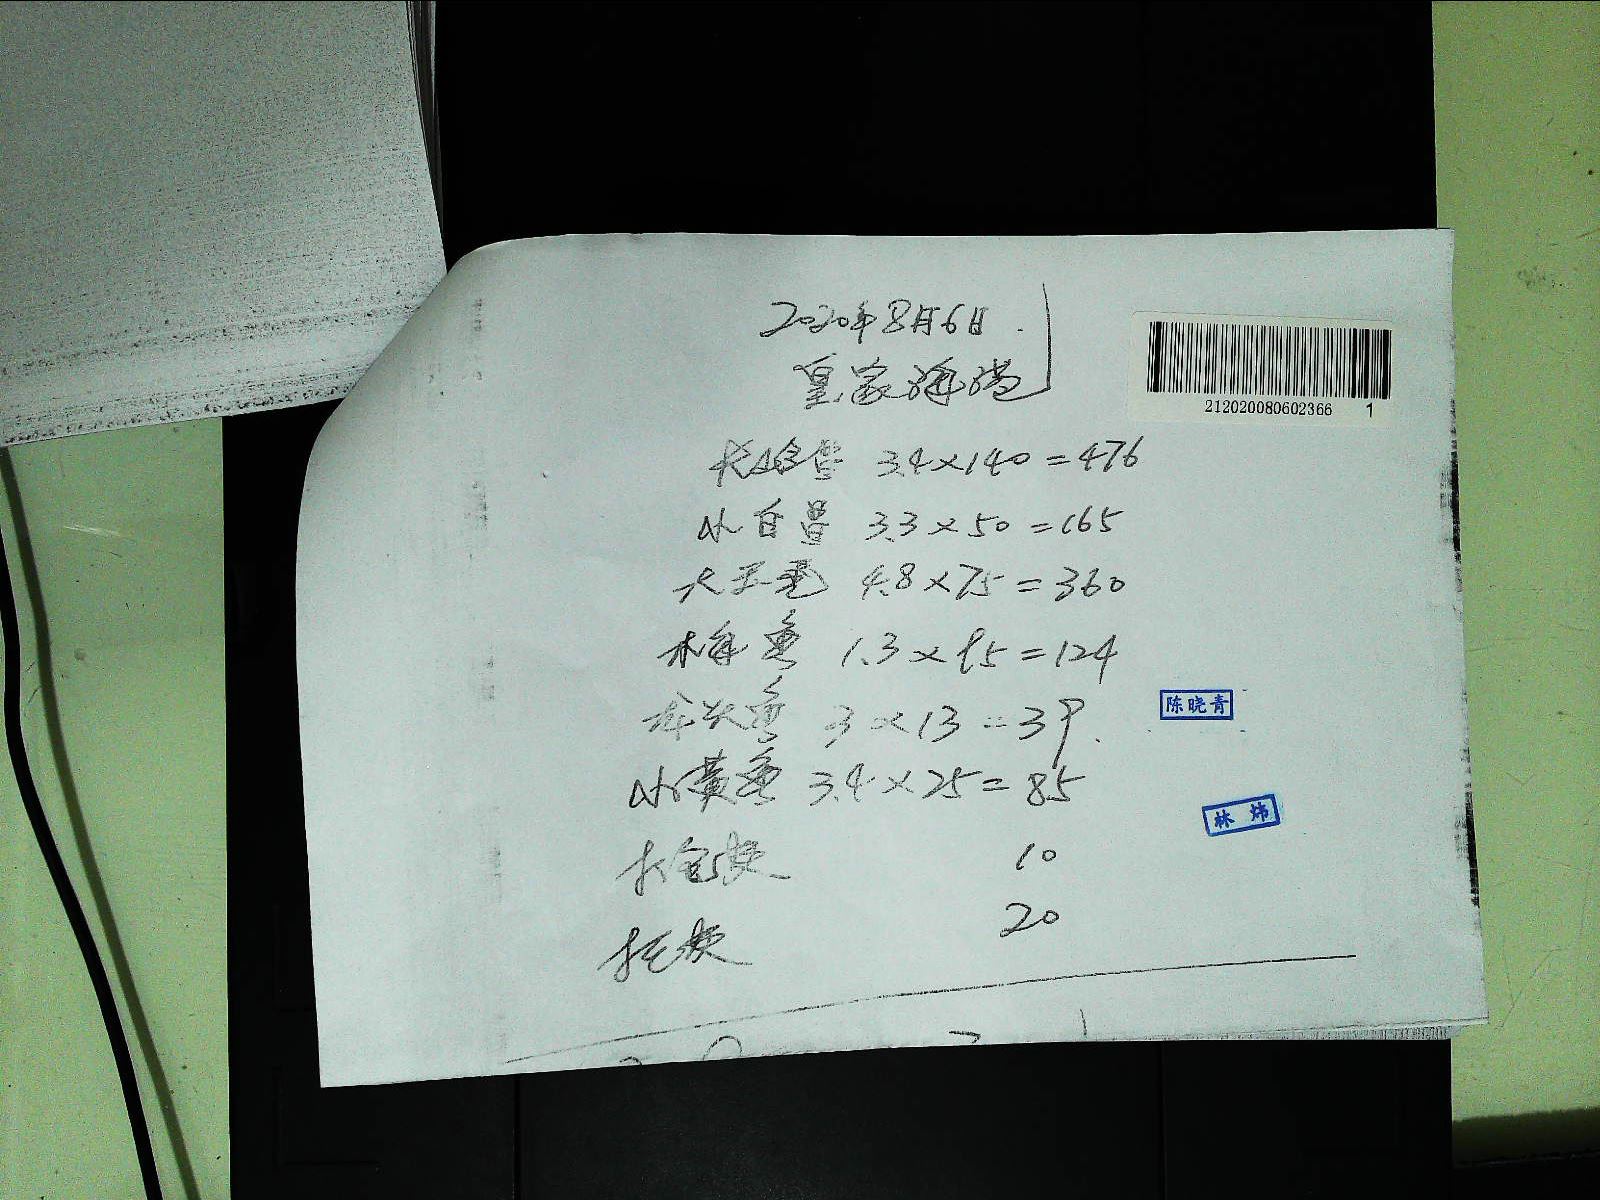 2020年8月6日
皇家海港
212020080602366 1
3.4×140=476
小白 3.3×50=165
大 4.8×75=360
梅鱼 1.3×95=124
龙头鱼 3×13=39
陈晓青
小黄鱼 3.4×25=85
林炜
打包费 10
20